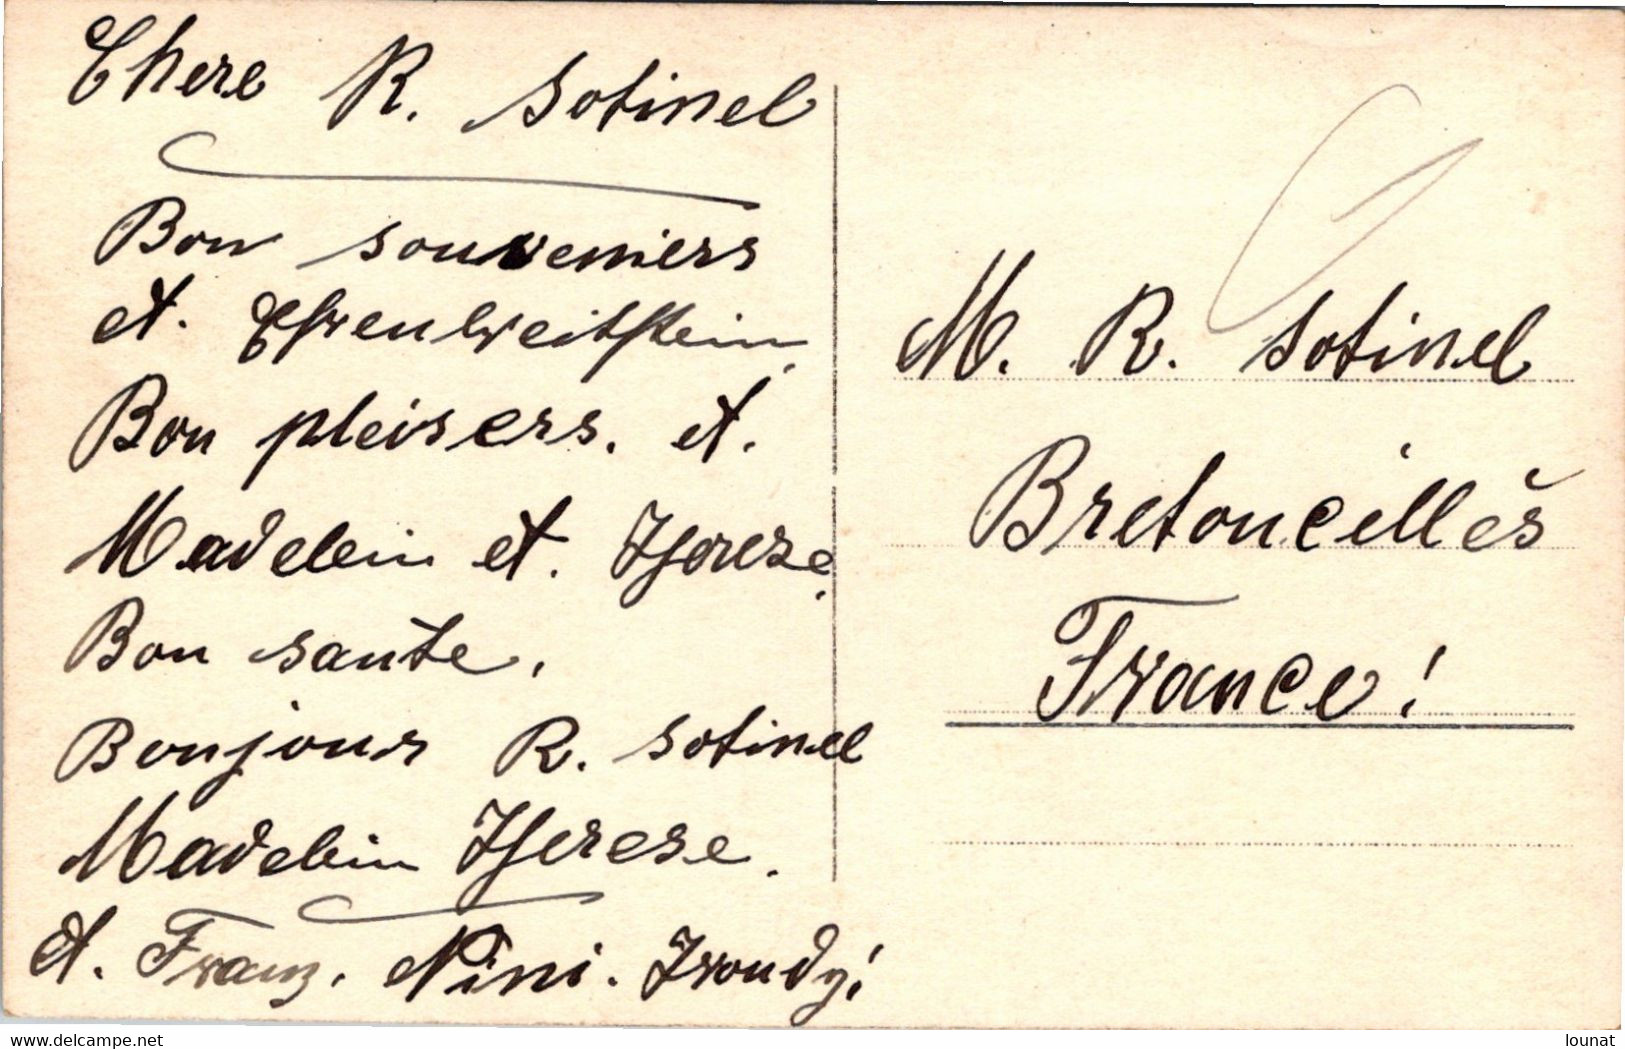 Chere R. Sotinel
Bon souveniers
et. Ehrenbreitstein.
Bon pleisers. et.
Madelein et. Therese.
Bon sante.
Bonjour R. Sotinel
Madelein Therese.
et. Franz. Nini. Droudy!
M. R. Sotinel
Bretoncelles
France!
www.delcampe.net
lounat